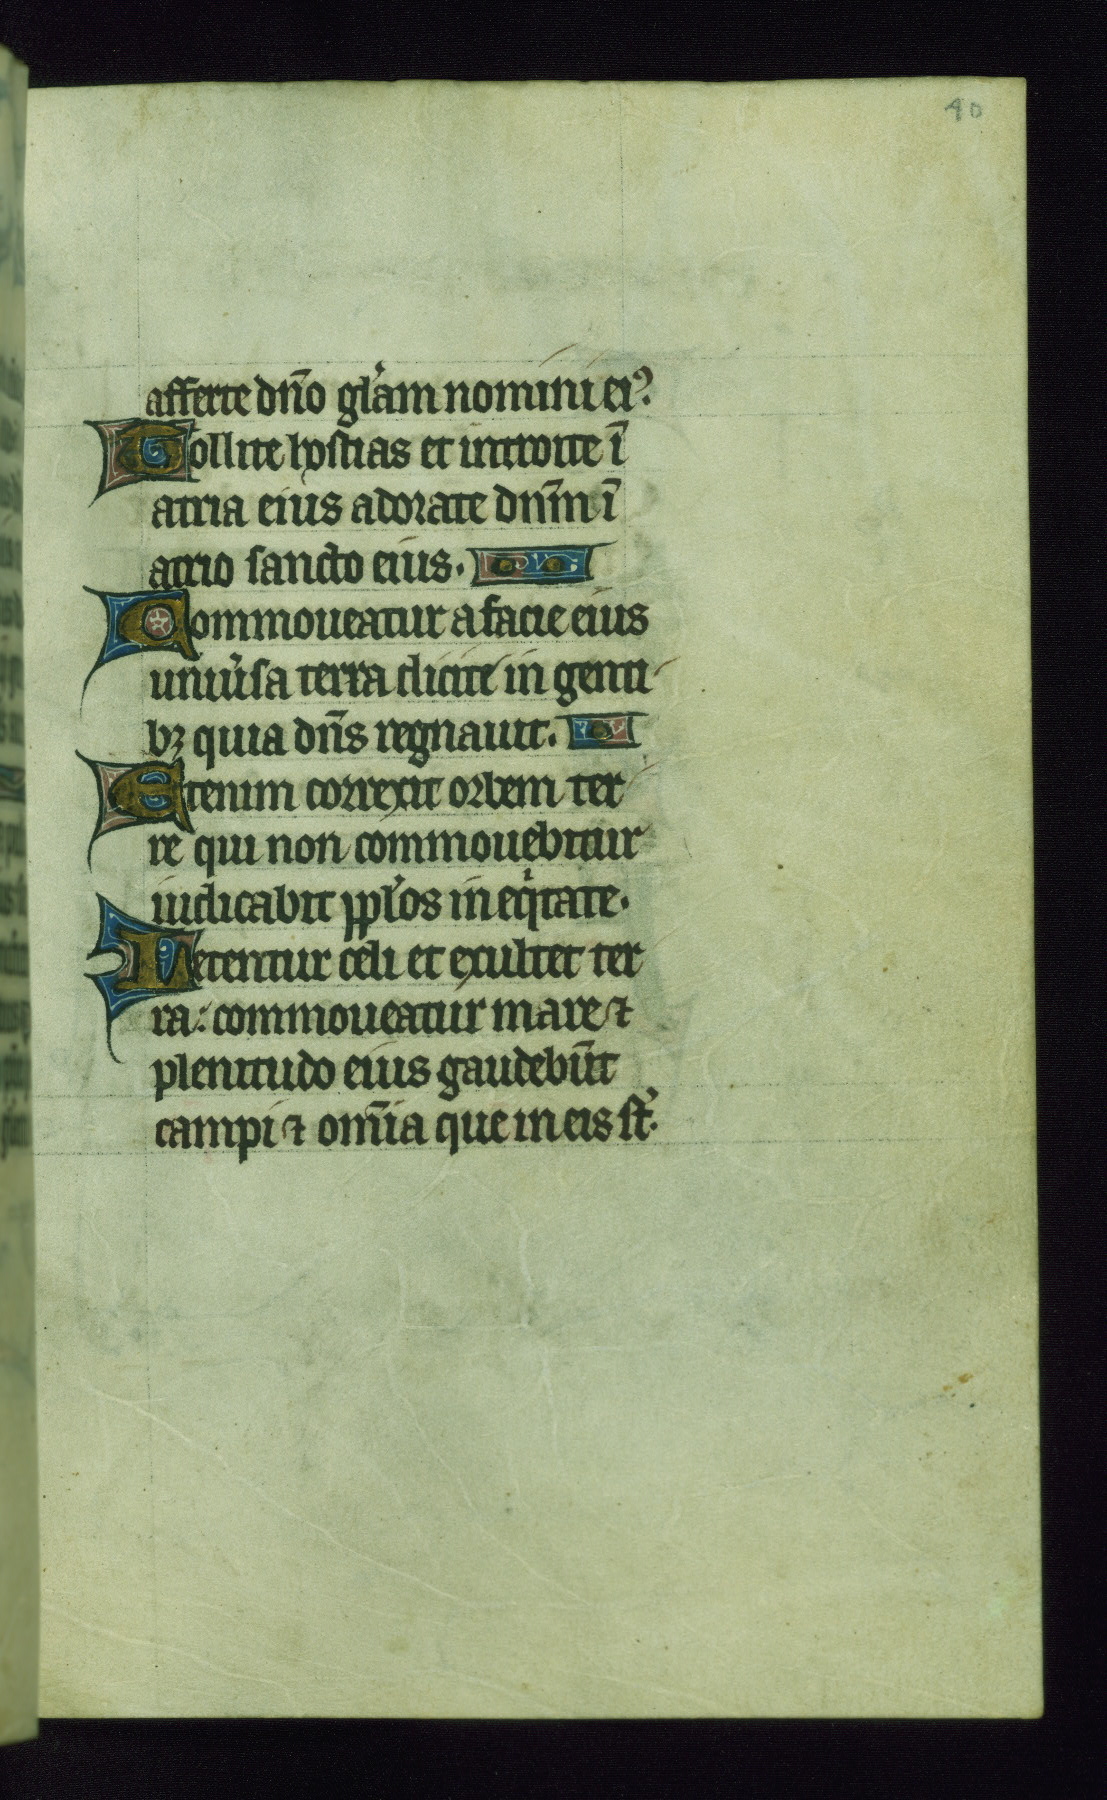 40
afferte dn̄o gl̓am nomini eiꝰ.
Tollite hostias et introite ī
atria eius adorate dnm̄ ī
atrio sancto eius.
Commoueatur a facie eius
uniu̓sa terra dicite in genti
bꝫ quia dn̄s regnauit.
Etenim correxit orbem ter
re qui non commouebitur
iudicabit ppl̓os in eqͥtate.
Letentur celi et exultet ter
ra: commoueatur mare ⁊
plenitudo eius gaudebūt
campi ⁊ om̄ia que in eis st̓.